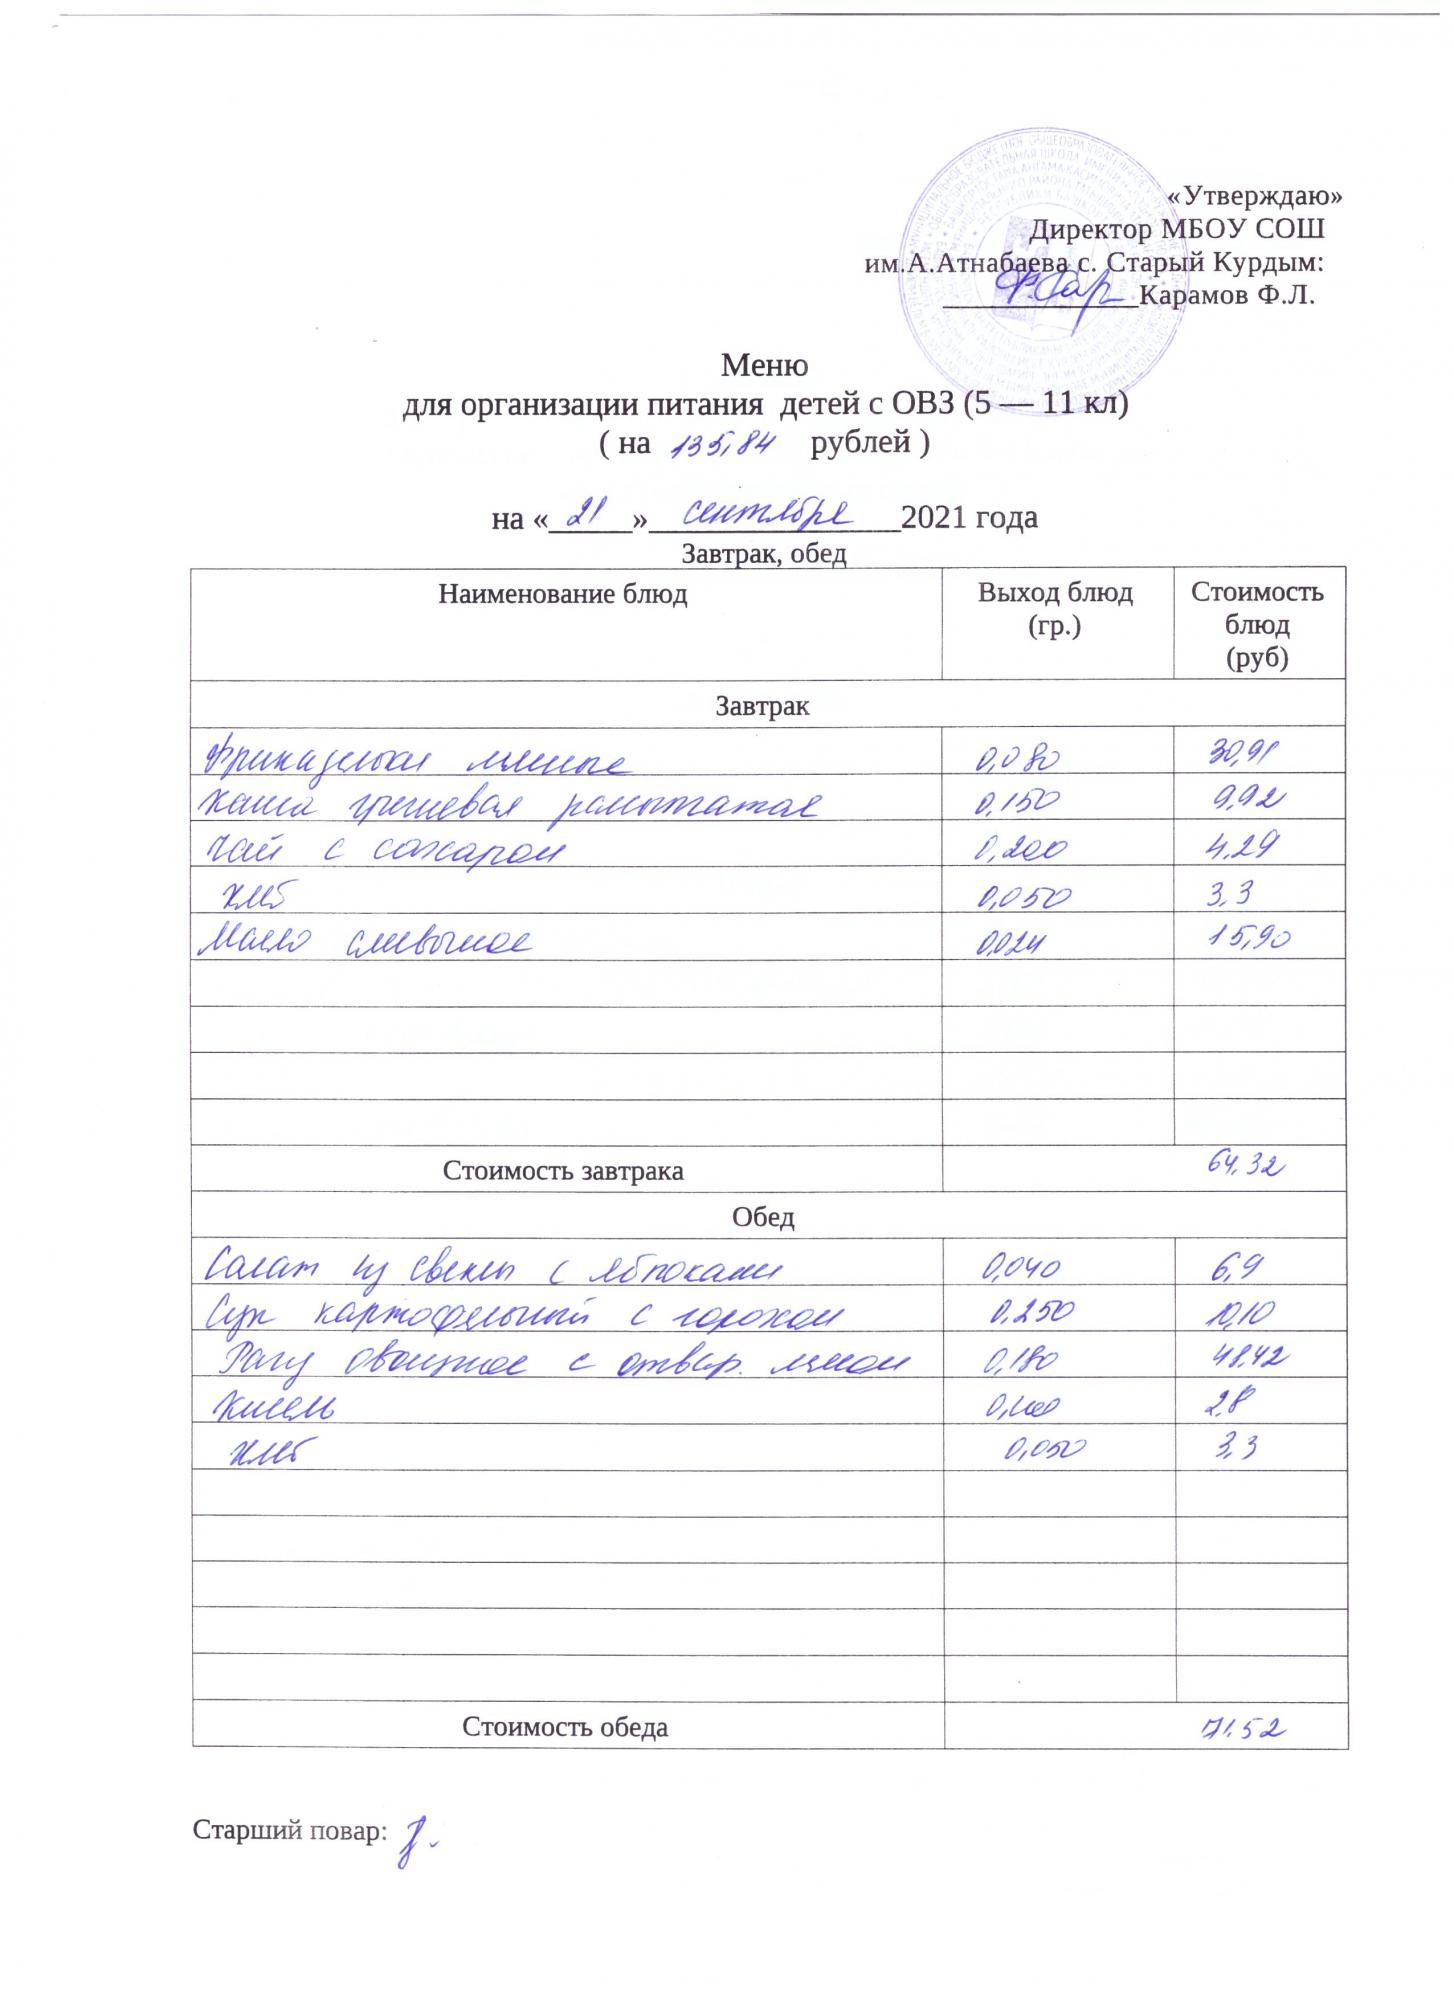 «Утверждаю»
Директор МБОУ СОШ
им.А.Атнабаева с. Старый Курдым:
Карамов Ф.Л.
Меню
для организации питания детей с ОВЗ (5 — 11 кл)
( на 135,84 рублей )
на « 21 » сентября 2021 года
Завтрак, обед
Наименование блюд Выход блюд (гр.) Стоимость блюд (руб)
Завтрак
Фрикадельки мясные 0,080 30,91
Каша гречневая рассыпчатая 0,150 9,92
Чай с сахаром 0,200 4,29
Хлеб 0,050 3,3
Масло сливочное 0,024 15,90
Стоимость завтрака 64,32
Обед
Салат из свеклы с яблоками 0,040 6,9
Суп картофельный с горохом 0,250 10,10
Рагу овощное с отвар. мясом 0,180 48,42
Кисель 2,8
Хлеб 0,050 3,3
Стоимость обеда 71,52
Старший повар: